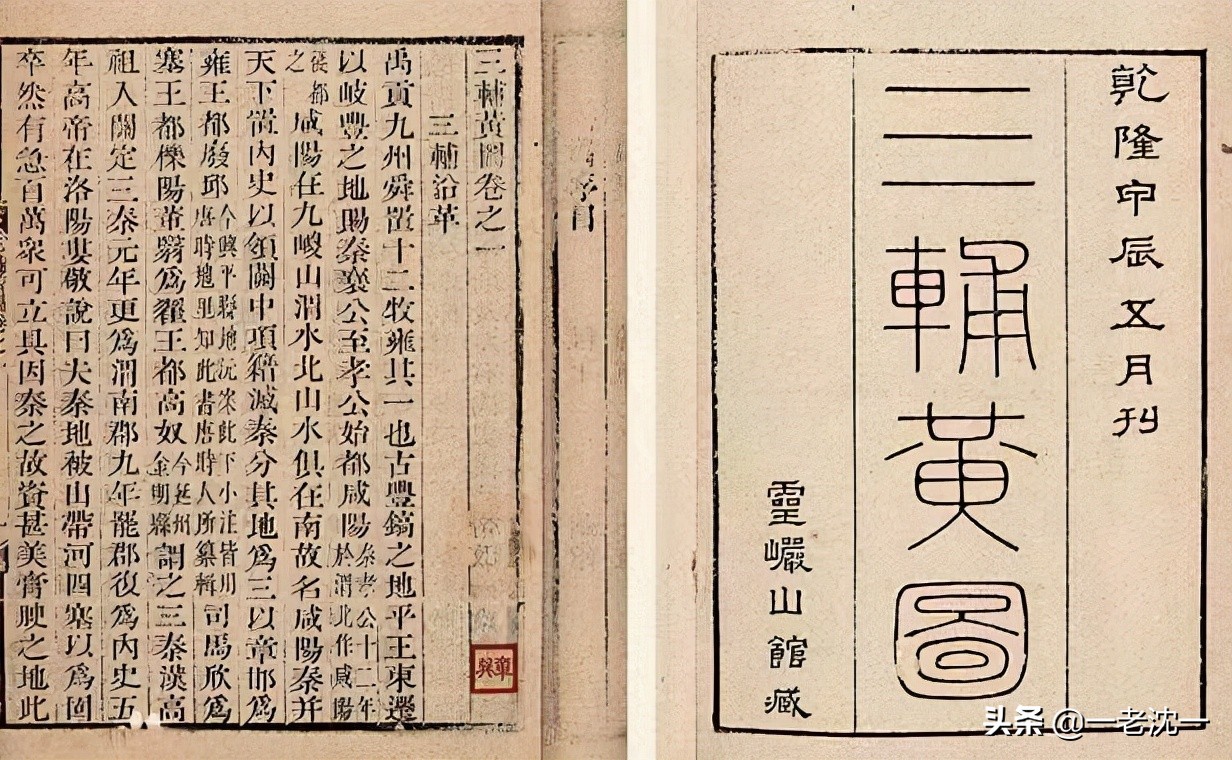 乾隆甲辰五月刊
三輔黃圖
靈巖山館藏
序目
三輔黃圖卷之一
三輔沿革
禹貢九州舜置十二牧雍其一也古豐鎬之地平王東遷
以岐豐之地賜秦襄公至孝公始都咸陽秦孝公十二年於渭北作咸陽
徙都之咸陽在九嵕山渭水北山水俱在南故名咸陽秦并
天下置內史以領關中項籍滅秦分其地爲三以章邯爲
雍王都廢邱今興平縣地沅案此下小注皆用唐時地里知此書唐時人所纂輯司馬欣爲
塞王都櫟陽董翳爲翟王都高奴今延州金明縣謂之三秦漢高
祖入關定三秦元年更爲渭南郡九年罷郡復爲內史五
年高帝在洛陽婁敬說曰夫秦地被山帶河四塞以爲固
卒然有急百萬衆可立具因秦之故資甚美膏腴之地此
头条 @一老沈一